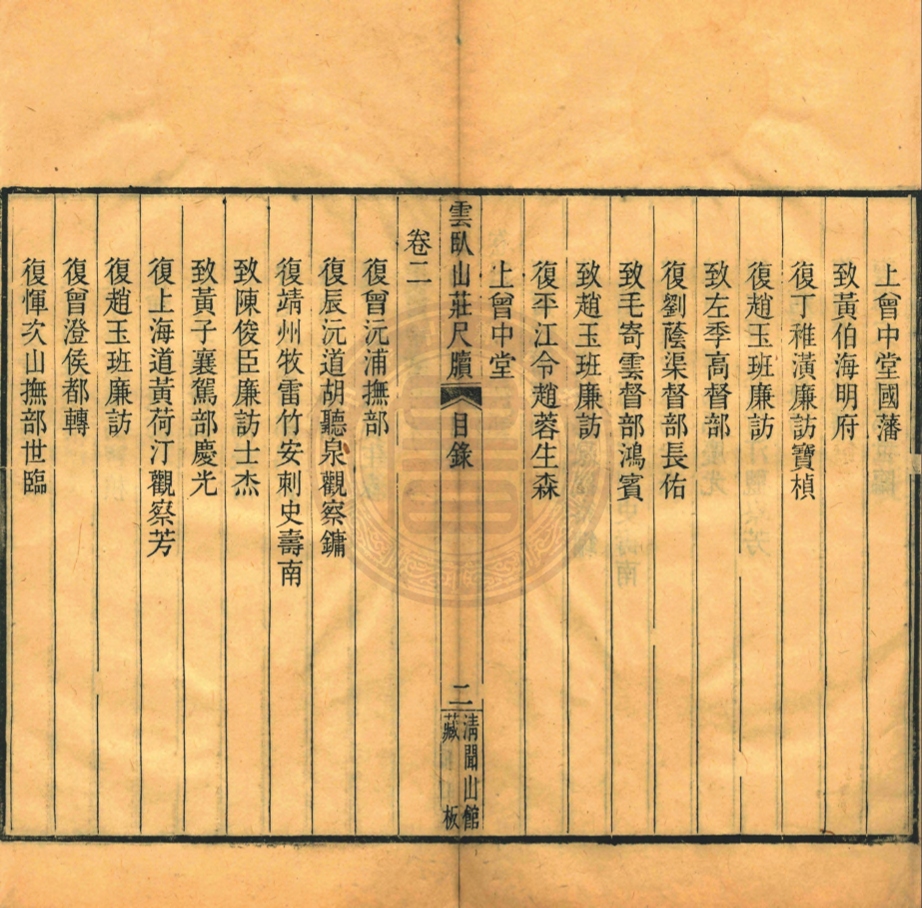 上曾中堂國藩
致黃伯海明府
復丁稚潢廉訪寶楨
復趙玉班廉訪
致左季高督部
復劉蔭渠督部長佑
致毛寄雲督部鴻賓
致趙玉班廉訪
復平江令趙蓉生森
上曾中堂
雲臥山莊尺牘 目錄 二 清聞山館藏板
卷二
復曾沅浦撫部
復辰沅道胡聽泉觀察鏞
復靖州牧雷竹安刺史壽南
致陳俊臣廉訪士杰
致黃子襄駕部慶光
復上海道黃荷汀觀察芳
復趙玉班廉訪
復曾澄侯都轉
復惲次山撫部世臨